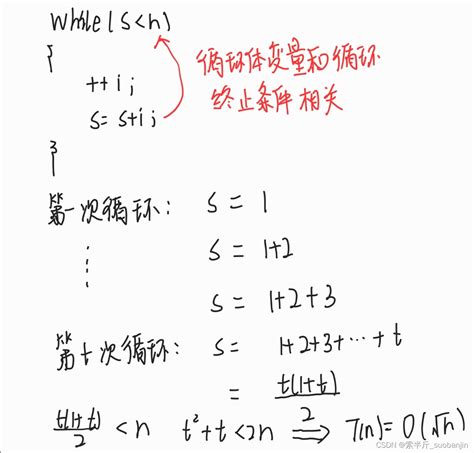 while(s<n)
{
++i;
s=s+i;
}
循环体变量和循环
终止条件相关
第一次循环: s = 1
⋮ s = 1+2
s = 1+2+3
第t次循环: s = 1+2+3+⋯+t
= t(1+t)/2
t(1+t)/2 <n t²+t<2n ⟹ T(n)=O(√n)
CSDN @索半斤_suobanjin